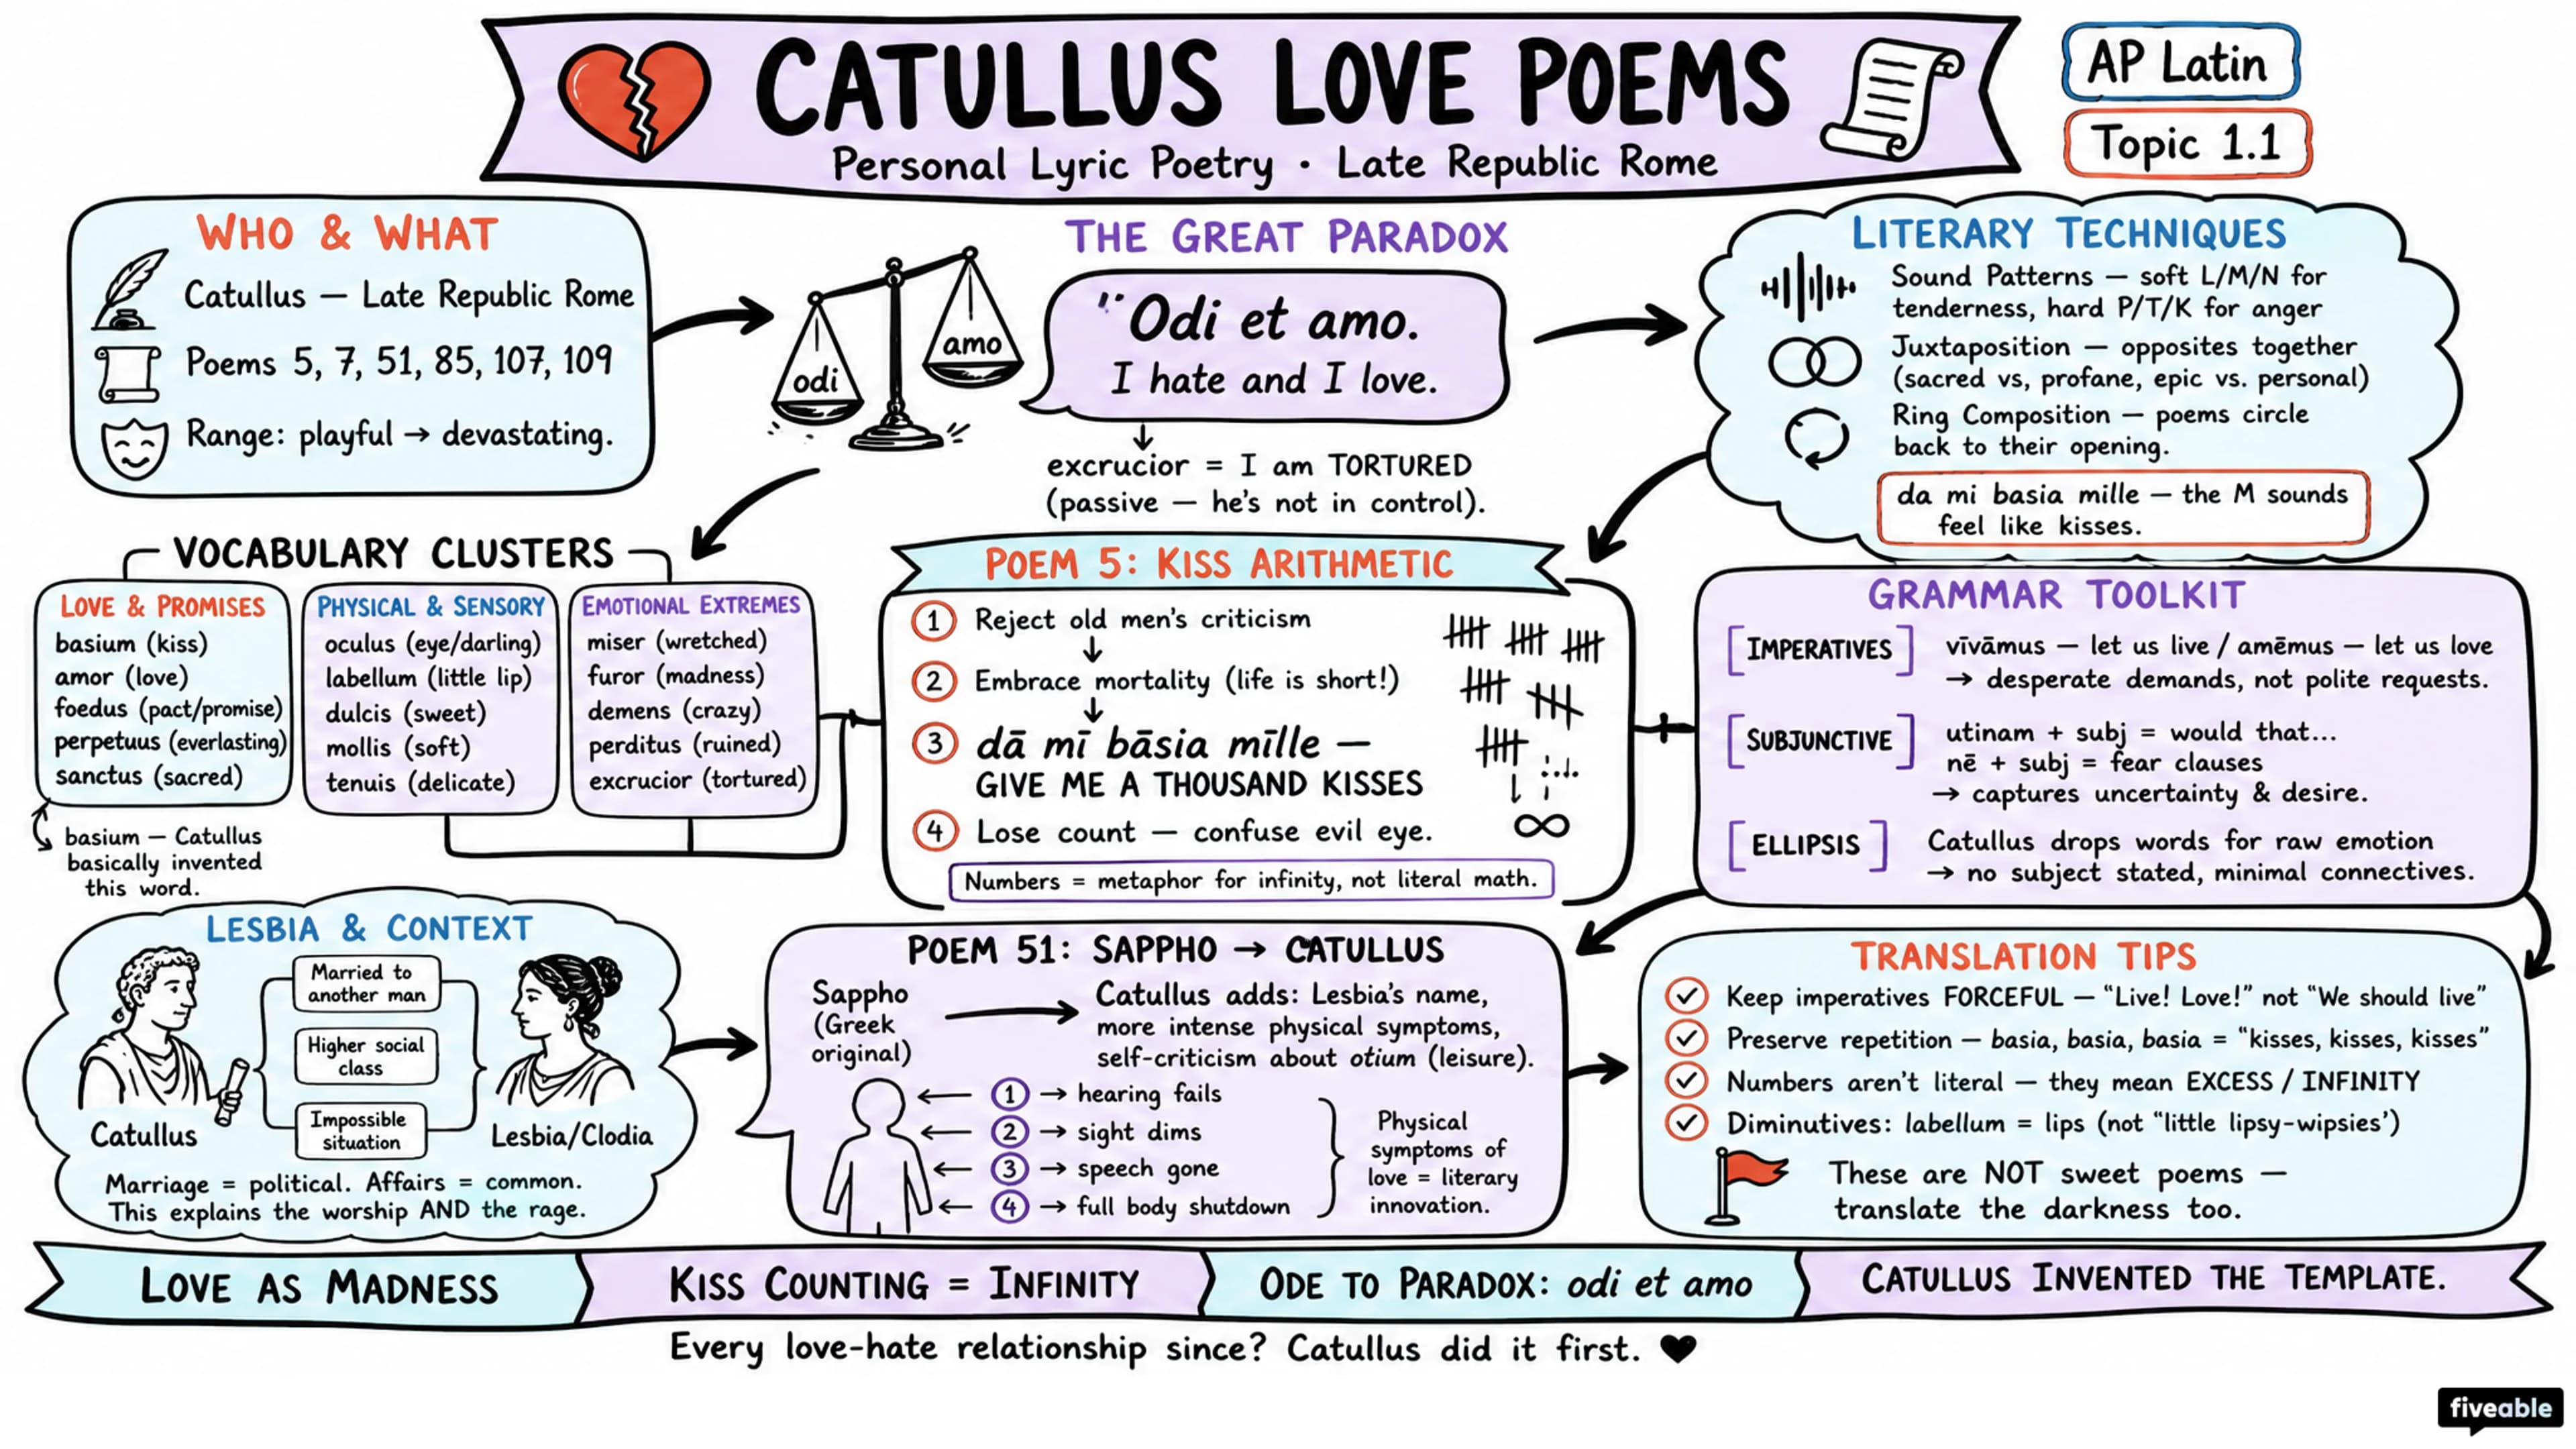 CATULLUS LOVE POEMS
Personal Lyric Poetry · Late Republic Rome
AP Latin
Topic 1.1
WHO & WHAT
Catullus — Late Republic Rome
Poems 5, 7, 51, 85, 107, 109
Range: playful → devastating.
odi
amo
THE GREAT PARADOX
"Odi et amo.
I hate and I love.
↓
excrucior = I am TORTURED
(passive — he's not in control).
LITERARY TECHNIQUES
Sound Patterns — soft L/M/N for
tenderness, hard P/T/K for anger
Juxtaposition — opposites together
(sacred vs, profane, epic vs. personal)
Ring Composition — poems circle
back to their opening.
da mi basia mille — the M sounds
feel like kisses.
VOCABULARY CLUSTERS
LOVE & PROMISES
basium (kiss)
amor (love)
foedus (pact/promise)
perpetuus (everlasting)
sanctus (sacred)
basium — Catullus
basically invented
this word.
PHYSICAL & SENSORY
oculus (eye/darling)
labellum (little lip)
dulcis (sweet)
mollis (soft)
tenuis (delicate)
EMOTIONAL EXTREMES
miser (wretched)
furor (madness)
demens (crazy)
perditus (ruined)
excrucior (tortured)
POEM 5: KISS ARITHMETIC
1 Reject old men's criticism
↓
2 Embrace mortality (life is short!)
↓
3 dā mī bāsia mīlle —
GIVE ME A THOUSAND KISSES
4 Lose count — confuse evil eye.
∞
Numbers = metaphor for infinity, not literal math.
GRAMMAR TOOLKIT
[IMPERATIVES] vīvāmus — let us live / amēmus — let us love
→ desperate demands, not polite requests.
[SUBJUNCTIVE] utinam + subj = would that...
nē + subj = fear clauses
→ captures uncertainty & desire.
[ELLIPSIS] Catullus drops words for raw emotion
→ no subject stated, minimal connectives.
LESBIA & CONTEXT
Married to
another man
Higher social
class
Impossible
situation
Catullus
Lesbia/Clodia
Marriage = political. Affairs = common.
This explains the worship AND the rage.
POEM 51: SAPPHO → CATULLUS
Sappho
(Greek
original)
Catullus adds: Lesbia's name,
more intense physical symptoms,
self-criticism about otium (leisure).
← 1 → hearing fails
← 2 → sight dims
← 3 → speech gone
← 4 → full body shutdown
Physical
symptoms of
love = literary
innovation.
TRANSLATION TIPS
✓ Keep imperatives FORCEFUL — "Live! Love!" not "We should live"
✓ Preserve repetition — basia, basia, basia = "kisses, kisses, kisses"
✓ Numbers aren't literal — they mean EXCESS / INFINITY
✓ Diminutives: labellum = lips (not "little lipsy-wipsies')
These are NOT sweet poems —
translate the darkness too.
LOVE AS MADNESS
KISS COUNTING = INFINITY
ODE TO PARADOX: odi et amo
CATULLUS INVENTED THE TEMPLATE.
Every love-hate relationship since? Catullus did it first. ♥
fiveable